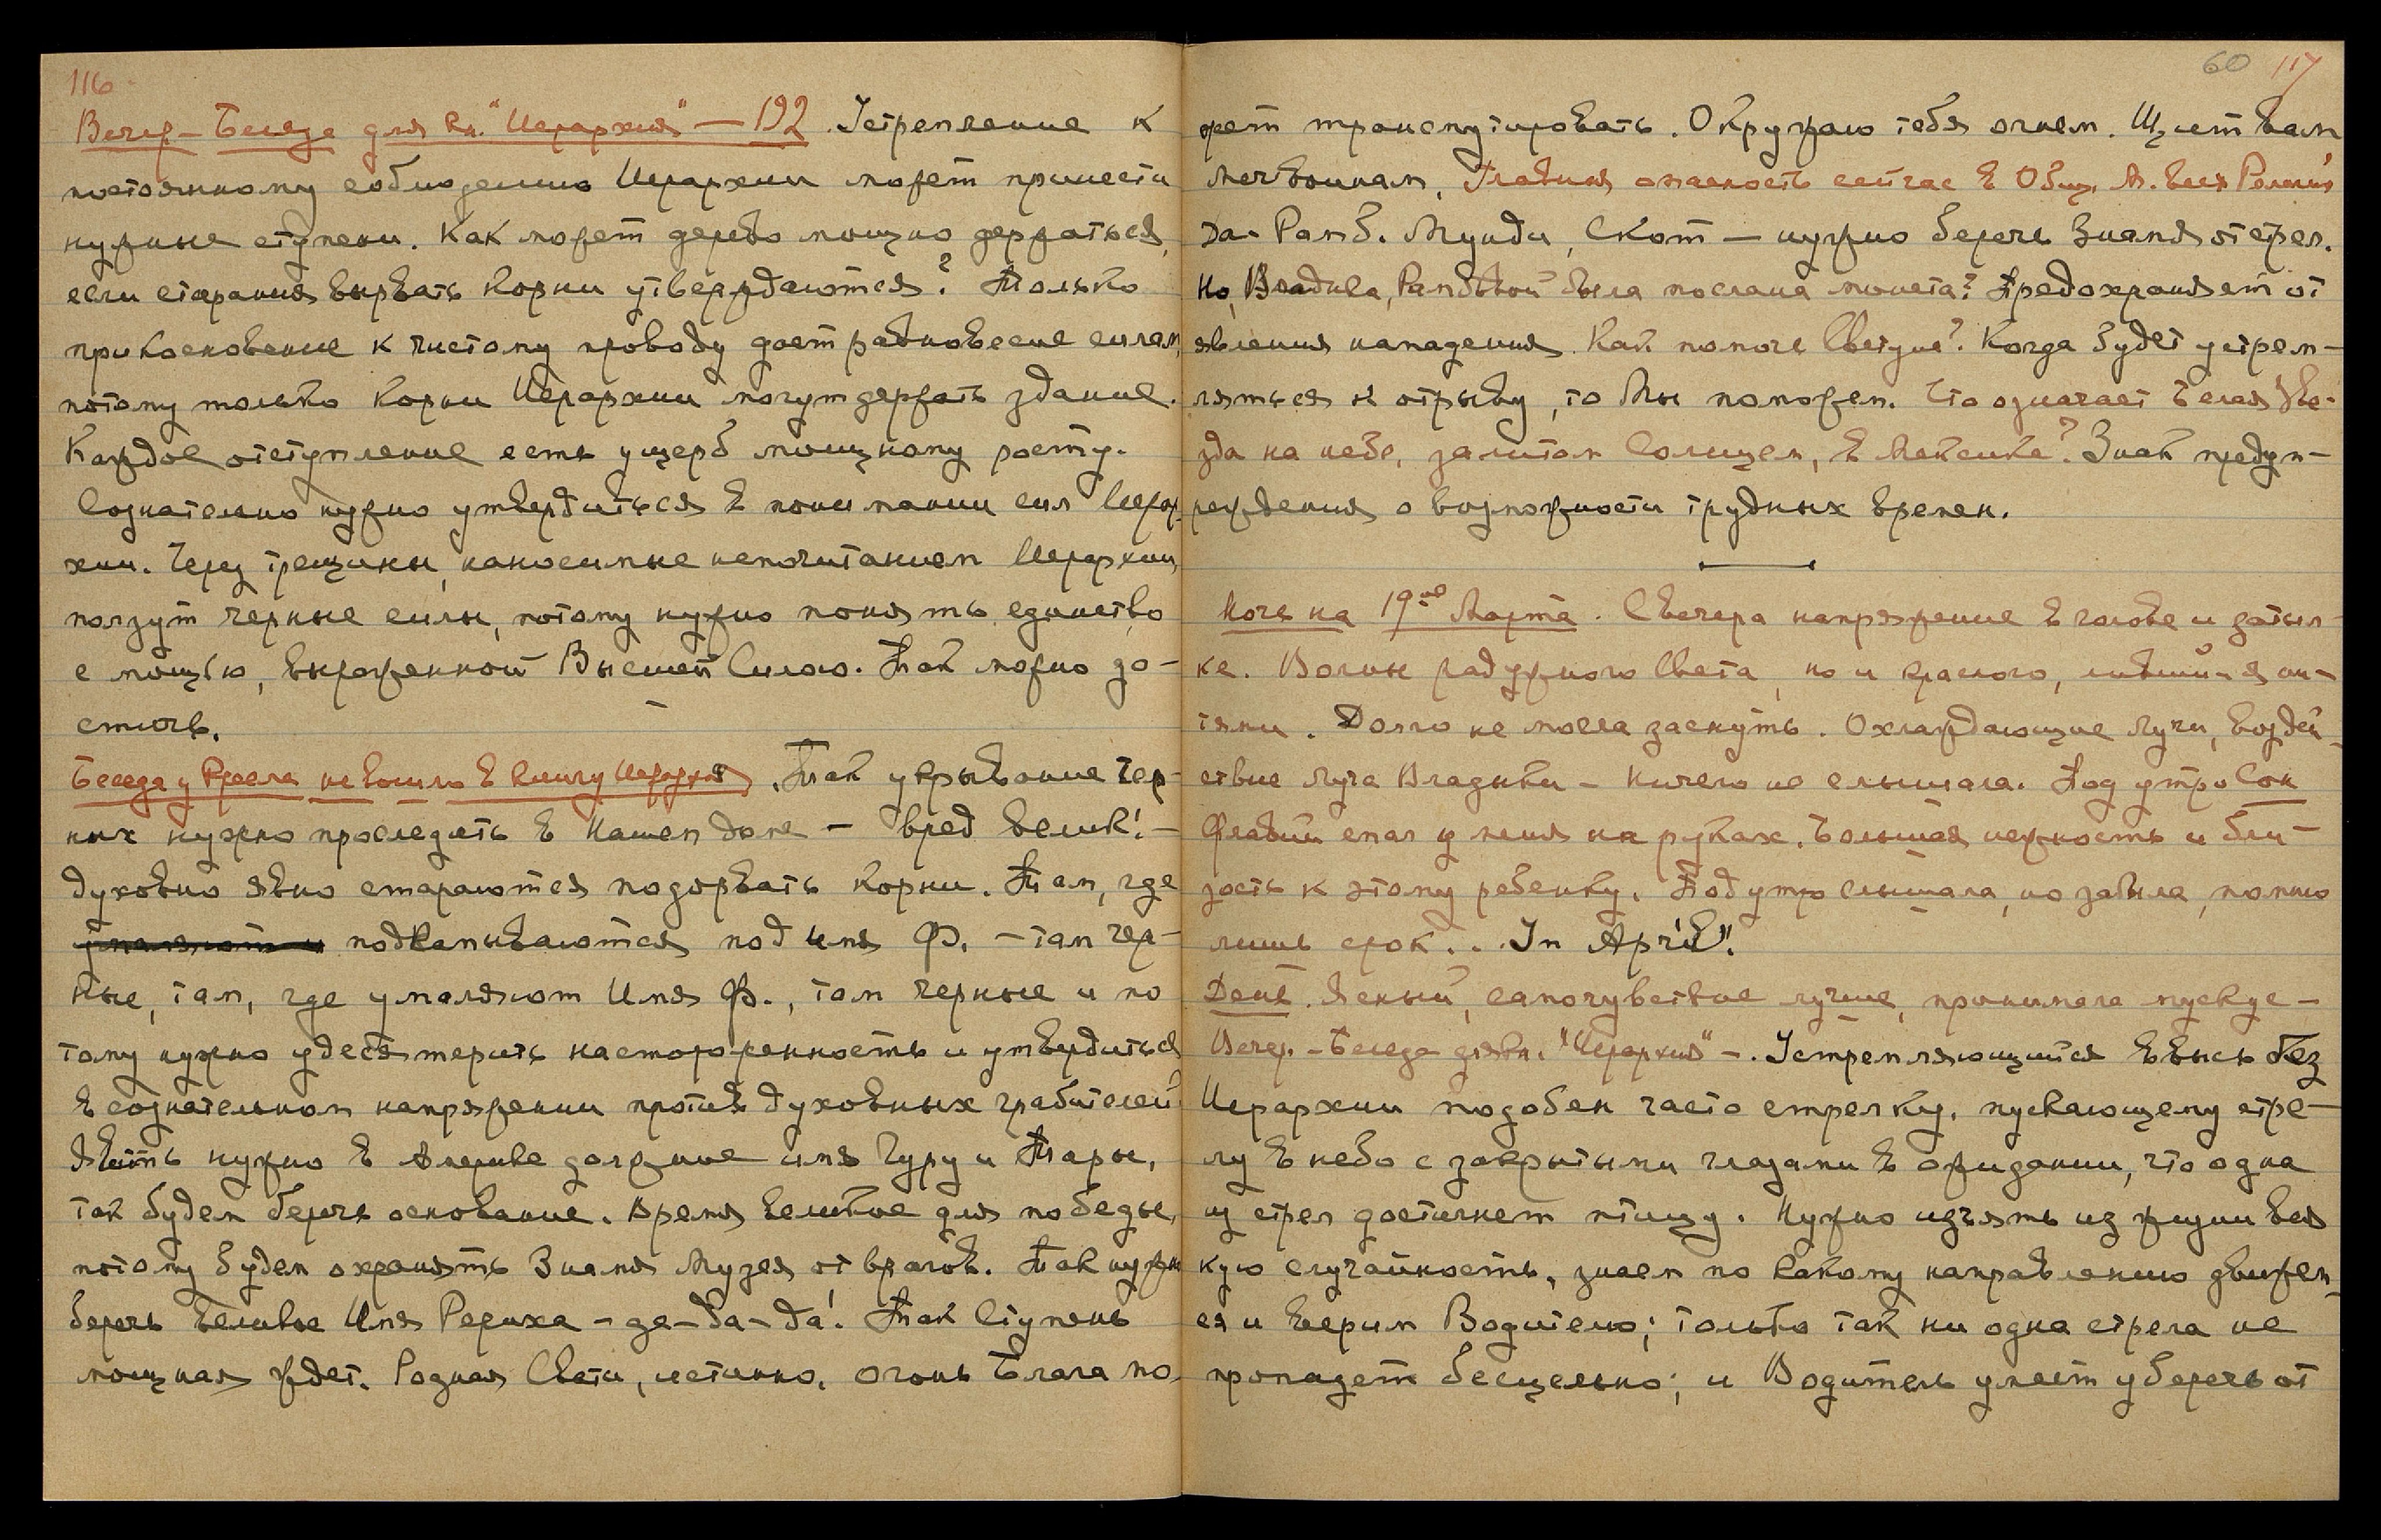 116
Вечер – Беседа для кн. "Иерархия" – 192. Устремление к
постоянному соблюдению Иерархии может принести
нужные ступени. Как может дерево мощно держаться,
если старания вырвать корни утверждаются? Только
прикосновение к чистому проводу даст равновесие силам,
потому только корни Иерархии могут держать здание.
Каждое отступление есть ущерб мощному росту.
Сознательно нужно утвердиться в понимании сил Иерар-
хии. Через трещины, наносимые непочитанием Иерархии,
ползут черные силы, потому нужно понять единство
с мощью, выраженной Высшей Силою. Так можно до-
стичь.
Беседа у кресла не вошло в книгу Иерархия. Так укрывание чер-
ных нужно проследить в Нашем доме – вред велик! –
духовно явно стараются подорвать корни. Там, где
подкапываются под имя Ф. – там чер-
ные, там, где умаляют Имя Ф., там черные и по
тому нужно удесятерить настороженность и утвердиться
в сознательном напряжении против духовных грабителей.
Явить нужно в Америке должное имя Гуру и Тары,
так будем беречь основание. Время великое для победы,
потому будем охранять Знамя Музея от врагов. Так нужно
беречь великое Имя Рериха – да – да – да! Так Ступень
мощная ждет. Родная Свати, истинно, огонь Блага мо-
60 117
жет трансмутировать. Окружаю тебя огнем. Щит вам
Меч воинам. Главная опасность сейчас в Общ. А. всех Религий
Да. Рамб. Мунди, Скот – нужно беречь Знамя от стрел.
Но, Владыка, Рамбовой была послана монета? Предохраняет от
явления нападения. Как помочь Светуне? Когда будет устрем-
ляться к отрыву, то Мы поможем. Что означает Белая Зве-
зда на небе, залитом Солнцем, в Мексике? Знак предуп-
реждения о возможности трудных времен.
Ночь на 19ое Марта. С вечера напряжение в голове и затыл-
ке. Волны радужного Света, но и красного, пят-
нами. Долго не могла заснуть. Охлаждающие лучи, воздей-
ствие луча Владыки – ничего не слышала. Под утро Сон
Флавий спал у меня на руках. Большая нежность и бли-
зость к этому ребенку. Под утро слышала, но забыла, помню
лишь срок... In April".
День. Ясный, самочувствие лучше, принимала мускус –
Вечер. – Беседа для кн. "Иерархия" –. Устремляющийся ввысь без
Иерархии подобен часто стрелку, пускающему стре-
лу в небо с закрытыми глазами в ожидании, что одна
из стрел достигнет птицу. Нужно изъять из жизни вся
кую случайность, знаем по какому направлению движем-
ся и верим Водителю; только так ни одна стрела не
пропадет бесцельно; и Водитель умеет уберечь от